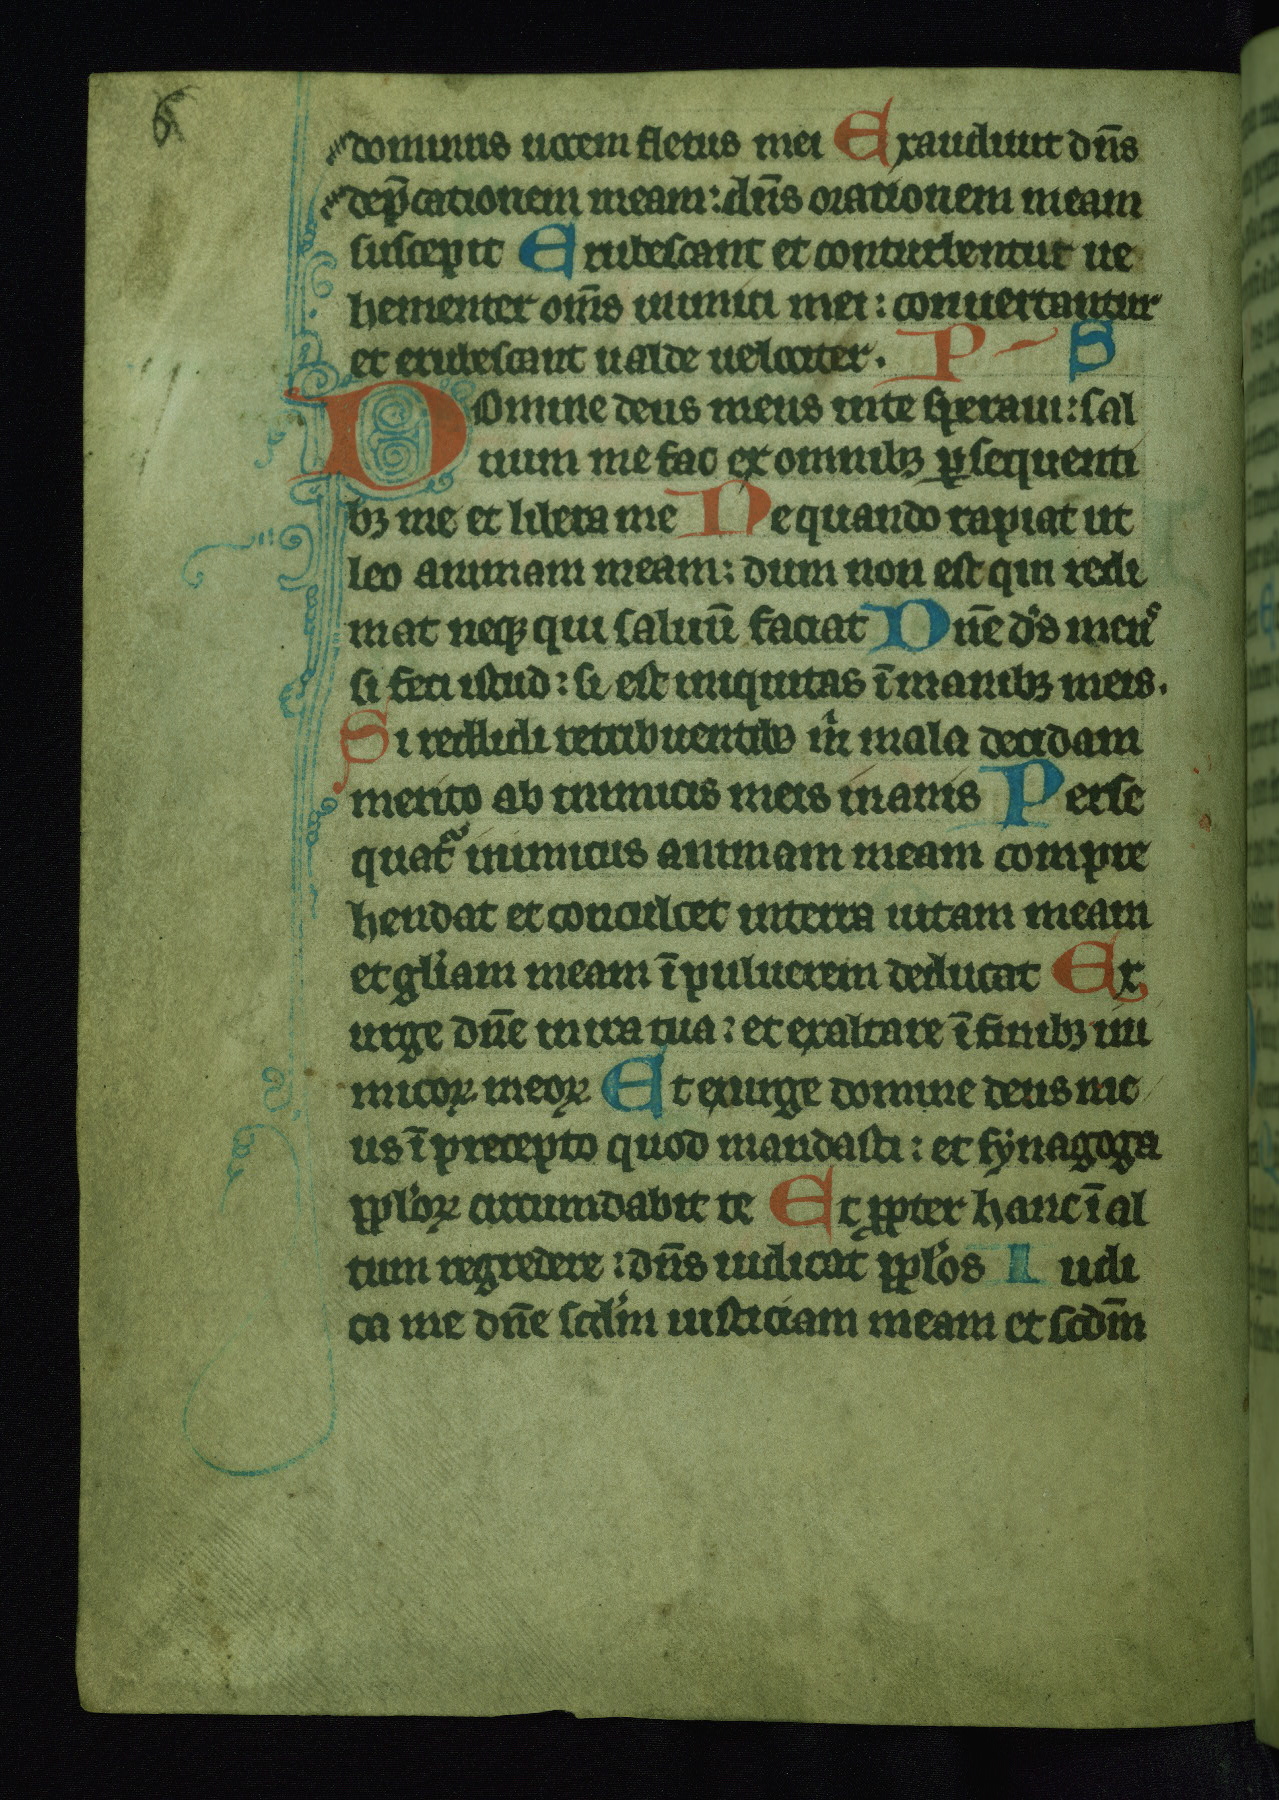 dominus uocem fletus mei Exaudiuit dn̄s
dep̄cationem meam: dn̄s orationem meam
suscepit Erubescant et conturbentur ue
hementer om̄s inimici mei: conuertantur
et erubescant ualde uelociter. P S
Domine deus meus inte speraui: sal
uum me fac ex omnibꝫ ꝑsequenti
bꝫ me et libera me Nequando rapiat ut
leo animam meam: dum non est qui redi
mat neqꝫ qui saluū faciat Dn̄e ds meꝰ
si feci istud: si est iniquitas ī manibꝫ meis.
Si reddidi retribuentibꝫ m̄ mala decidam
merito ab inimicis meis inanis Perse
quat᷑ inimicus animam meam compre
hendat et conculcet interra uitam meam
et gl̄iam meam ī puluerem deducat Ex
urge dn̄e in ira tua: et exaltare ī finibꝫ ini
micoꝝ meoꝝ Et exurge domine deus me
us ī precepto quod mandasti: et synagoga
ppl̄oꝝ circumdabit te Et ꝓpter hanc ī al
tum regredere: dn̄s iudicat ppl̄os Iudi
ca me dn̄e scd̄m iusticiam meam et scdm̄